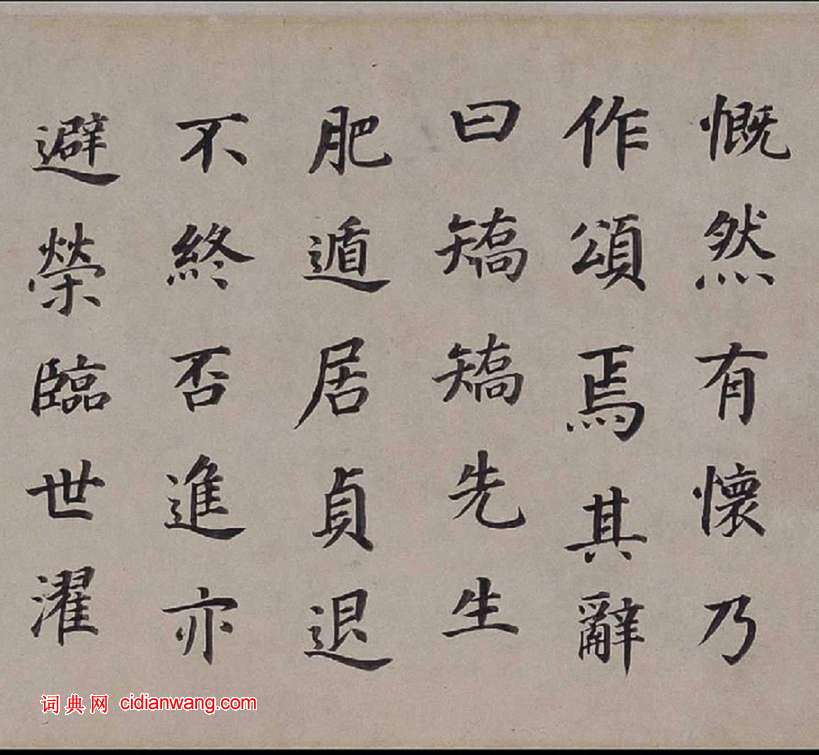 慨然有懷乃
作頌焉其辭
曰矯矯先生
肥遁居貞退
不終否進亦
避榮臨世濯
词典网 cidianwang.com